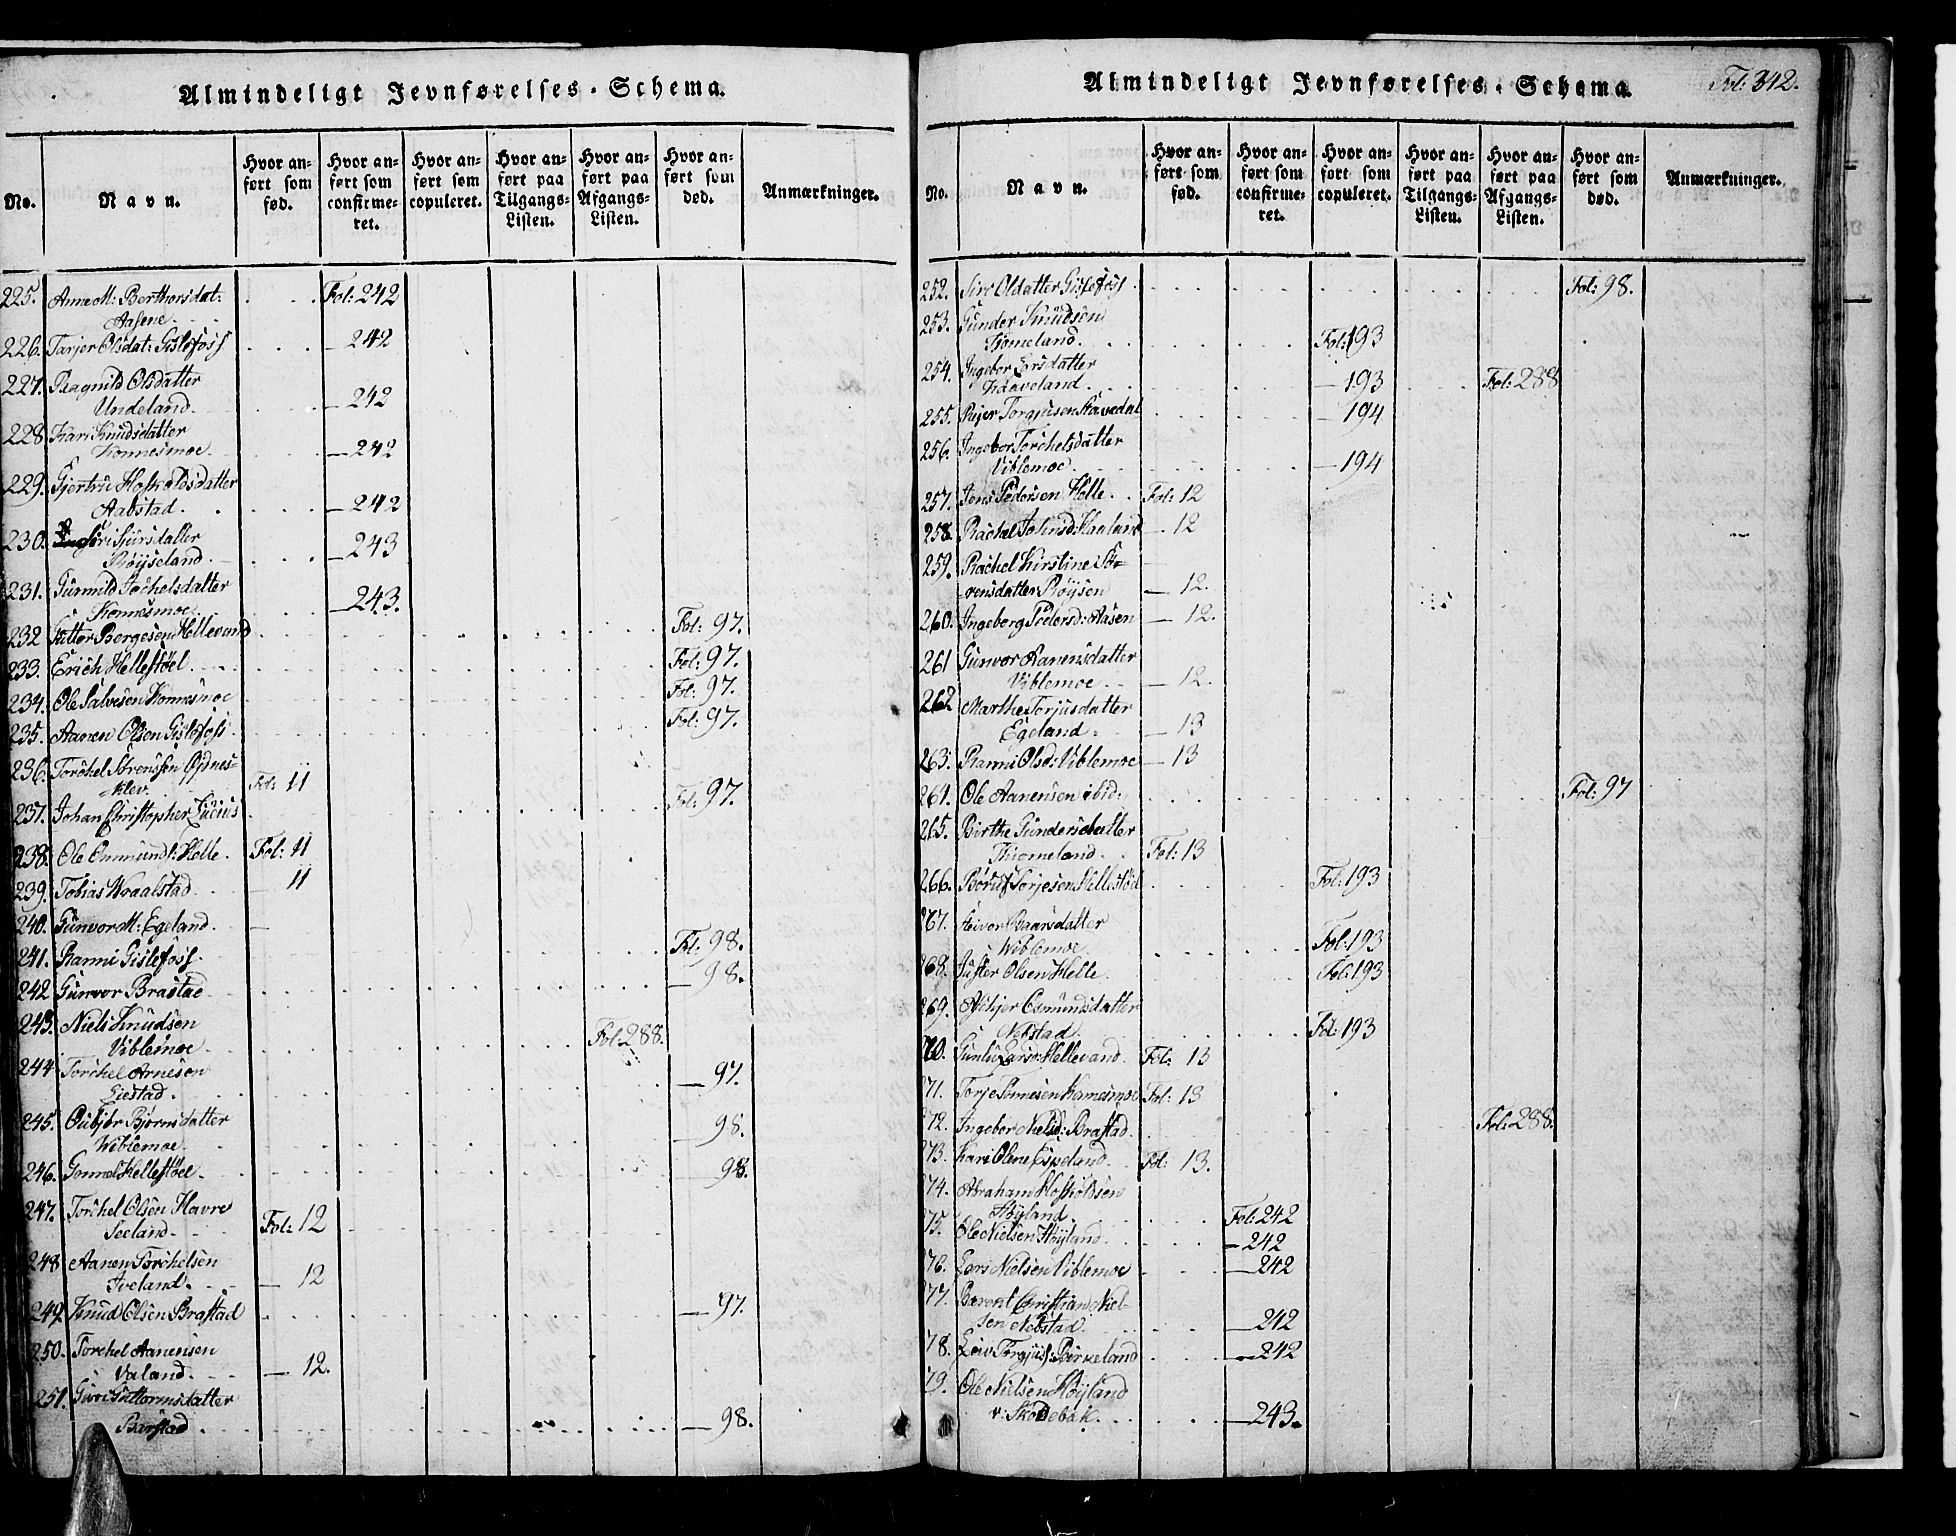 Almindeligt Jevnførelses-Schema.
No.
Navn.
Hvor an-
ført som
fød.
Hvor an-
ført som
confirme-
ret.
Hvor an-
ført som
copuleret.
Hvor an-
ført paa
Tilgangs-
Listen.
Hvor an-
ført paa
Afgangs-
Listen.
Hvor an-
ført som
død.
Anmærkninger.
225. Anne M: Berthorsdat: Fol: 242
Aasene
226. Tarjer Olsdat: Gislefoss — 242
227. Ragnild Olsdatter
Undeland — 242
228 Kari Knudsdatter
Konnesmoe — 242
229. Gjertru Hoskoldsdatter
Aabstad — 242
230. Siri Siursdatter
Røyseland — 243
231. Gunnild Tochelsdatter
Konnesmoe — 243.
232 Børgesen Hellevand Fol: 97.
233. Erich Hellestøel Fol: 97.
234. Ole Salvesen Konnesmoe Fol: 97.
235. Aanen Olsen Gislefoss Fol: 97.
236. Torchel Sørensen Ødnes-
klev. Fol: 11
237. Johan Christopher Fol: 97.
238. Ole Ommunds: Helle. Fol: 11
239. Tobias Wraalstad — 11
240. Gunvor M: Egeland. —
241. Ranni Gislefoss Fol: 98.
242 Gunvor Brastad — 98.
243. Niels Knudsen
Viblemoe Fol: 288.
244 Torchel Arnesen
Liestad. — 97.
245. Oubjør Bjørnsdatter
Wiblemoe — 98.
246. Gunnel Hellestøel — 98.
247. Torchel Olsen Havre
Seeland Fol: 12
248 Aanen Torchelsen
Iveland — 12
249. Knud Olsen Brastad — 97.
250. Torchel Aanensen
Valand. — 12.
251. Guro Guttormsdatter
Barstad — 98.
Almindeligt Jevnførelses-Schema.
Fol: 342.
No.
Navn.
Hvor an-
ført som
fød.
Hvor an-
ført som
confirme-
ret.
Hvor an-
ført som
copuleret.
Hvor an-
ført paa
Tilgangs-
Listen.
Hvor an-
ført paa
Afgangs-
Listen.
Hvor an-
ført som
død.
Anmærkninger.
252. Siri Oldatter Gislefoss Fol: 98.
253. Gunder Knudsen
Fol: 193
254. Ingebor Larsdatter
— 193 Fol: 288
255. Rejer Torgjusen Stavedal — 194
256. Ingebor Torchelsdatter
Viblemoe — 194
257. Jens Pedersen Helle. Fol: 12
258. Rachel Johnsd: Haaland — 12
259. Rachel Kirstine Sø-
rensdatter Røysen — 12.
260. Ingeborg Pedersd: Aasen — 12.
261 Gunvor Aanensdatter
Viblemoe — 12.
262 Marthe Torjusdatter
Egeland — 13
263. Ranni Olsd: Viblemoe — 13
264. Ole Aanensen ibid: Fol: 97
265. Birthe Gundersdatter
Fol: 13
266. Børuf Torjesen Hellestøel Fol: 193
267. Baarsdatter
Wiblemoe Fol: 193
268. Olsen Helle. Fol: 193
269. Osmundsdatter
Nebstad Fol: 193
70. Hellevand. Fol: 13
71. Torje Konnesmoe Fol: 13
72. Ingebor Nielsd: Brastad. Fol: 288.
73. Kari Olene Espeland. Fol: 13.
74. Abraham Hoskoldsen
Høyland Fol: 242
75. Ole Nielsen Høyland — 242
76. Lars Nielsen Viblemoe — 242
77. Berent Christian Niel-
sen Nebstad. — 242
78. Torgjus: Birkeland — 242
79. Ole Nielsen Høyland
v: Skodebak. — 243.